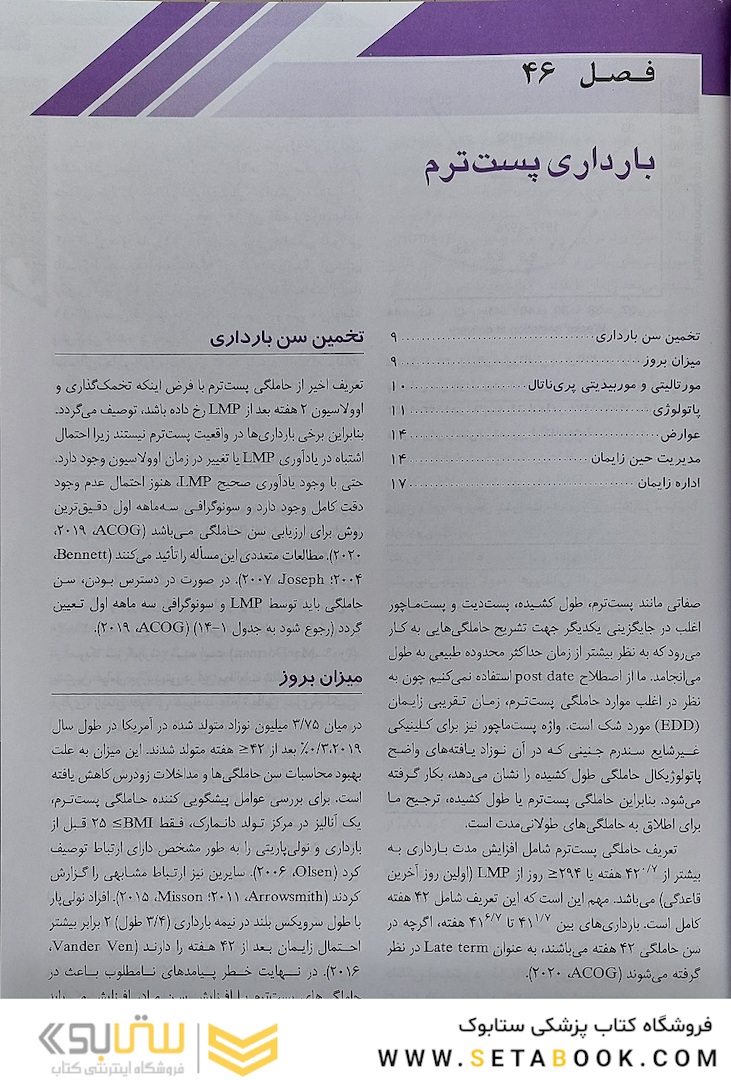 فصل ۴۶
بارداری پست‌ترم
تخمین سن بارداری ........ ۹
میزان بروز ........ ۹
مورتالیتی و موربیدیتی پری‌ناتال ........ ۱۰
پاتولوژی ........ ۱۱
عوارض ........ ۱۴
مدیریت حین زایمان ........ ۱۴
اداره زایمان ........ ۱۷
صفاتی مانند پست‌ترم، طول کشیده، پست‌دیت و پست‌ماچور
اغلب در جایگزینی یکدیگر جهت تشریح حاملگی‌هایی به کار
می‌رود که به نظر بیشتر از زمان حداکثر محدوده طبیعی به طول
می‌انجامد. ما از اصطلاح post date استفاده نمی‌کنیم چون به
نظر در اغلب موارد حاملگی پست‌ترم، زمان تقریبی زایمان
(EDD) مورد شک است. واژه پست‌ماچور نیز برای کلینیکی
غیرشایع سندرم جنینی که در آن نوزاد یافته‌های واضح
پاتولوژیکال حاملگی طول کشیده را نشان می‌دهد، بکار گرفته
می‌شود. بنابراین حاملگی پست‌ترم یا طول کشیده، ترجیح ما
برای اطلاق به حاملگی‌های طولانی‌مدت است.
تعریف حاملگی پست‌ترم شامل افزایش مدت بارداری به
بیشتر از ۴۲۰/۷ هفته یا ≥۲۹۴ روز از LMP (اولین روز آخرین
قاعدگی) می‌باشد. مهم این است که این تعریف شامل ۴۲ هفته
کامل است. بارداری‌های بین ۴۱۱/۷ تا ۴۱۶/۷ هفته، اگرچه در
سن حاملگی ۴۲ هفته می‌باشند، به عنوان Late term در نظر
گرفته می‌شوند (ACOG، ۲۰۲۰).
تخمین سن بارداری
تعریف اخیر از حاملگی پست‌ترم با فرض اینکه تخمک‌گذاری و
اوولاسیون ۲ هفته بعد از LMP رخ داده باشد، توصیف می‌گردد.
بنابراین برخی بارداری‌ها در واقعیت پست‌ترم نیستند زیرا احتمال
اشتباه در یادآوری LMP یا تغییر در زمان اوولاسیون وجود دارد.
حتی با وجود یادآوری صحیح LMP، هنوز احتمال عدم وجود
دقت کامل وجود دارد و سونوگرافی سه‌ماهه اول دقیق‌ترین
روش برای ارزیابی سن حاملگی می‌باشد (ACOG، ۲۰۱۹،
۲۰۲۰). مطالعات متعددی این مسأله را تأئید می‌کنند (Bennett،
۲۰۰۴؛ Joseph، ۲۰۰۷). در صورت در دسترس بودن، سن
حاملگی باید توسط LMP و سونوگرافی سه ماهه اول تعیین
گردد (رجوع شود به جدول ۱-۱۴) (ACOG، ۲۰۱۹).
میزان بروز
در میان ۳/۷۵ میلیون نوزاد متولد شده در آمریکا در طول سال
۲۰۱۹، ۰/۳٪ بعد از ≥۴۲ هفته متولد شدند. این میزان به علت
بهبود محاسبات سن حاملگی‌ها و مداخلات زودرس کاهش یافته
است. برای بررسی عوامل پیشگویی کننده حاملگی پست‌ترم،
یک آنالیز در مرکز تولد دانمارک، فقط BMI≥ ۲۵ قبل از
بارداری و نولی‌پاریتی را به طور مشخص دارای ارتباط توصیف
کرد (Olsen، ۲۰۰۶). سایرین نیز ارتباط مشابهی را گزارش
کردند (Arrowsmith، ۲۰۱۱؛ Misson، ۲۰۱۵). افراد نولی‌پار
با طول سرویکس بلند در نیمه بارداری (۳/۴ طول) ۲ برابر بیشتر
احتمال زایمان بعد از ۴۲ هفته را دارند (Vander Ven،
۲۰۱۶). در نهایت خطر پیامدهای نامطلوب باعث در
فروشگاه کتاب پزشکی ستابوک
WWW.SETABOOK.COM
ستابوک
فروشگاه اینترنتی کتاب